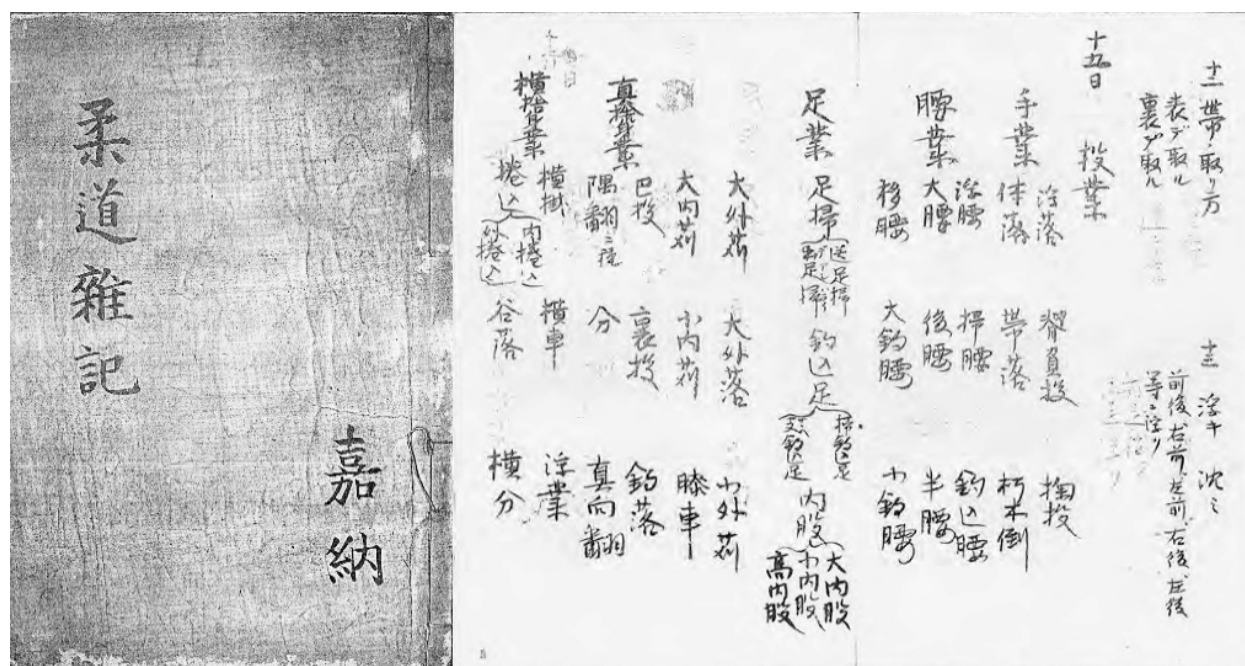 柔道雑記
嘉納
十二 帯ノ取リ方
表デ取ル
裏デ取ル
十三 浮キ 沈ミ
前後、右前、左前、右後、左後
等ニ注リ
十九日 投業
手業 浮落 背負投 掬投
体落 帯落 朽木倒
腰業 浮腰 掃腰 釣込腰
大腰 後腰 半腰
移腰 大釣腰 小釣腰
足業 足掃 送足掃 出足掃 釣込足 掃釣込足 支釣込足 内股 大内股 小内股 高内股
大外刈 大外落 小外刈
大内刈 小内刈 膝車
真捨身業 巴投 裏投 釣落
隅翻 二種 分 真向翻
横捨身業 横掛 横車 浮業
捲込 内捲込 外捲込 谷落 横分